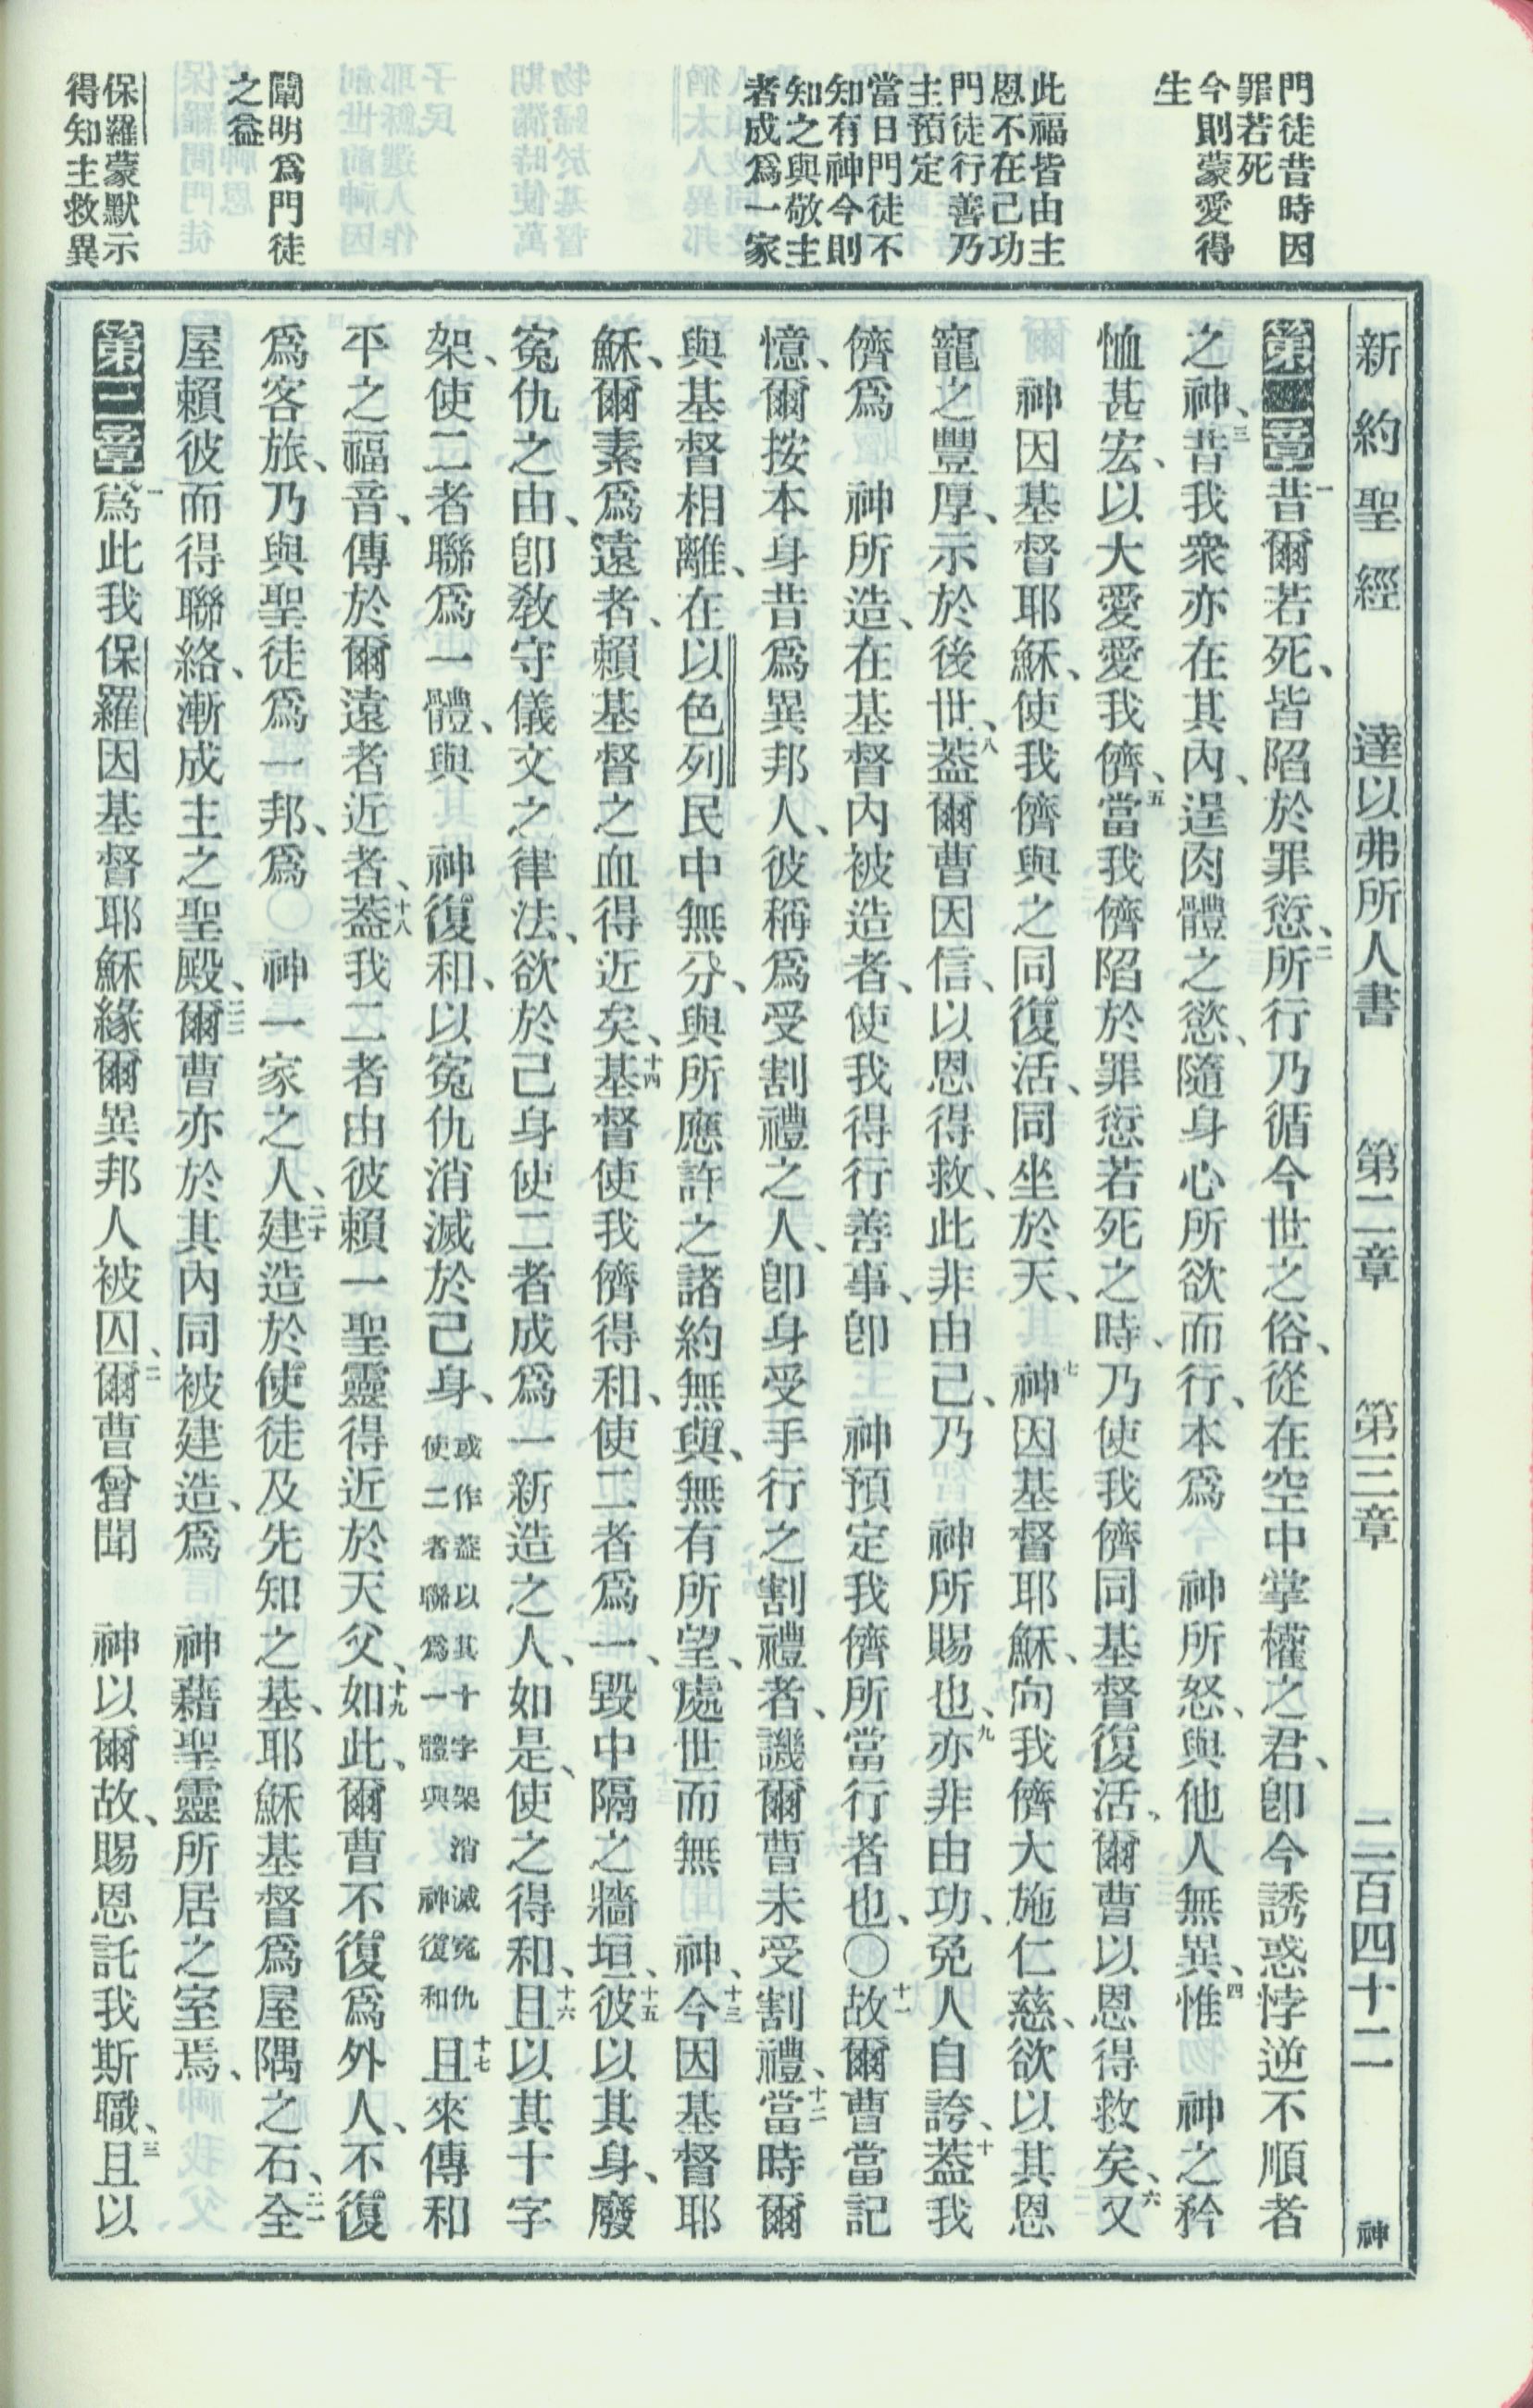 新約聖經 達以弗所人書 第二章 第三章 二百四十二 神
門徒昔時因
罪若死
今則蒙愛得
生
此福皆由主
恩不在己功
門徒行善乃
主預定
當日門徒不
知有神今則
知之與敬主
者成爲一家
闡明爲門徒
之益
保羅蒙默示
得知主救異
第二章 一昔爾若死、皆陷於罪愆、二所行乃循今世之俗、從在空中掌權之君、卽今誘惑悖逆不順者
之神、三昔我衆亦在其內、逞肉體之慾、隨身心所欲而行、本爲 神所怒、與他人無異、四惟 神之矜
恤甚宏、以大愛愛我儕、五當我儕陷於罪愆若死之時、乃使我儕同基督復活、爾曹以恩得救矣、六又
 神因基督耶穌、使我儕與之同復活、同坐於天、七 神因基督耶穌、向我儕大施仁慈、欲以其恩
寵之豐厚、示於後世、八蓋爾曹因信、以恩得救、此非由己、乃 神所賜也、九亦非由功、免人自誇、十蓋我
儕爲 神所造、在基督內被造者、使我得行善事、卽 神預定我儕所當行者也、〇十一故爾曹當記
憶、爾按本身昔爲異邦人、彼稱爲受割禮之人、卽身受手行之割禮者、譏爾曹未受割禮、十二當時爾
與基督相離、在以色列民中無分、與所應許之諸約無與、無有所望、處世而無 神、十三今因基督耶
穌、爾素爲遠者、賴基督之血得近矣、十四基督使我儕得和、使二者爲一、毀中隔之牆垣、十五彼以其身、廢
寃仇之由、卽敎守儀文之律法、欲於己身使二者成爲一新造之人、如是、使之得和、十六且以其十字
架、使二者聯爲一體、與 神復和、以寃仇消滅於己身、或作蓋以其十字架消滅寃仇使二者聯爲一體與神復和 十七且來傳和
平之福音、傳於爾遠者近者、十八蓋我二者由彼賴一聖靈得近於天父、十九如此、爾曹不復爲外人、不復
爲客旅、乃與聖徒爲一邦、爲〇神一家之人、二十建造於使徒及先知之基、耶穌基督爲屋隅之石、二一全
屋賴彼而得聯絡、漸成主之聖殿、二二爾曹亦於其內同被建造、爲 神藉聖靈所居之室焉、
第三章 一爲此我保羅因基督耶穌緣爾異邦人被囚、二爾曹曾聞 神以爾故、賜恩託我斯職、三且以